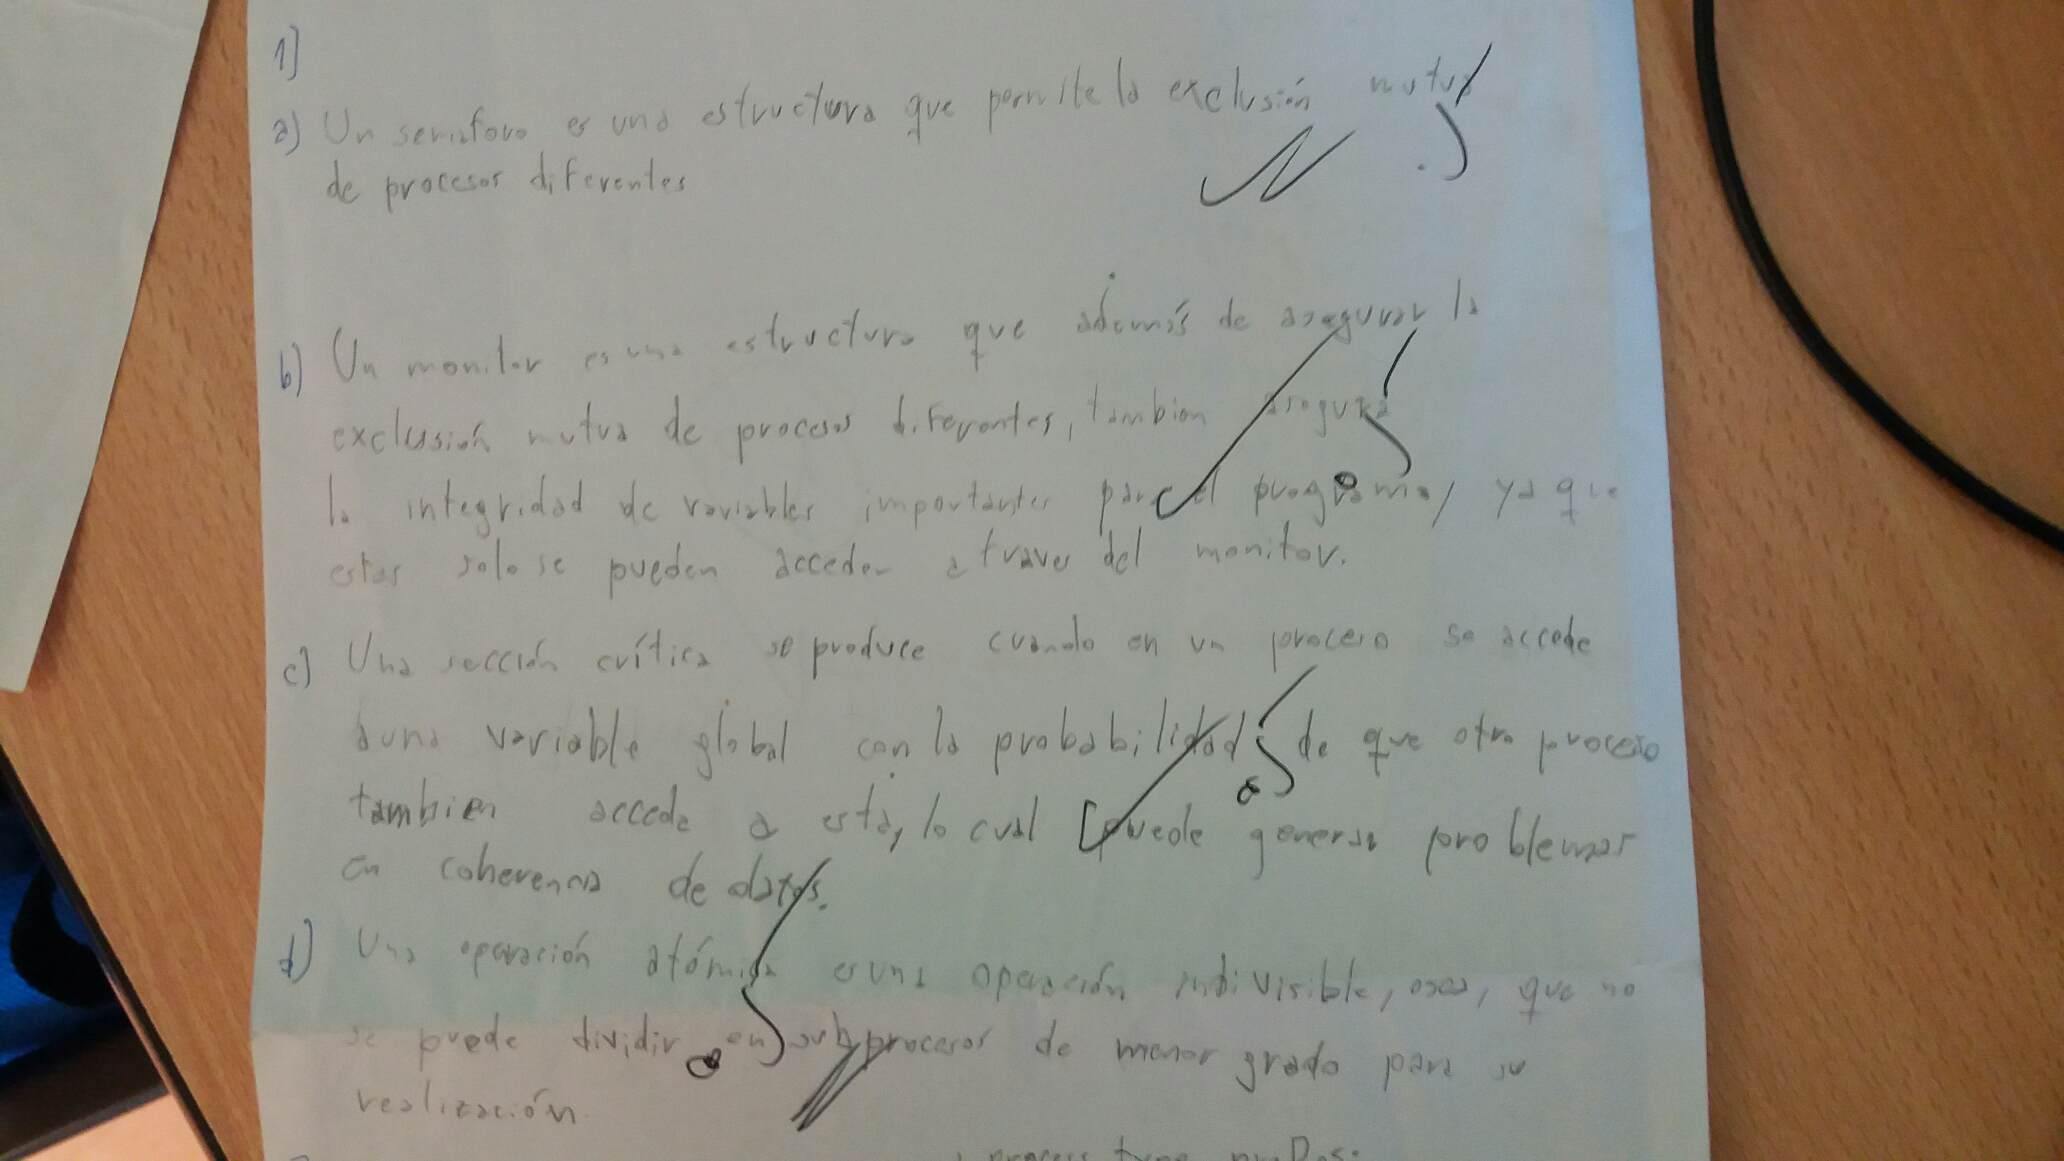 1]
a) Un semaforo es una estructura que permite la exclusión mutua
de procesos diferentes
b) Un monitor es una estructura que además de asegurar la
exclusión mutua de procesos diferentes, tambien asegura
la integridad de variables importantes para el programa, ya que
estas solo se pueden acceder a traves del monitor.
c) Una sección crítica se produce cuando en un proceso se accede
a una variable global con la probabilidad de que otro proceso
tambien accede a esta, lo cual puede generar problemas
en coherencia de datos.
d) Una operación atómica es una operación indivisible, osea, que no
se puede dividir en subprocesos de menor grado para su
realización.
process type